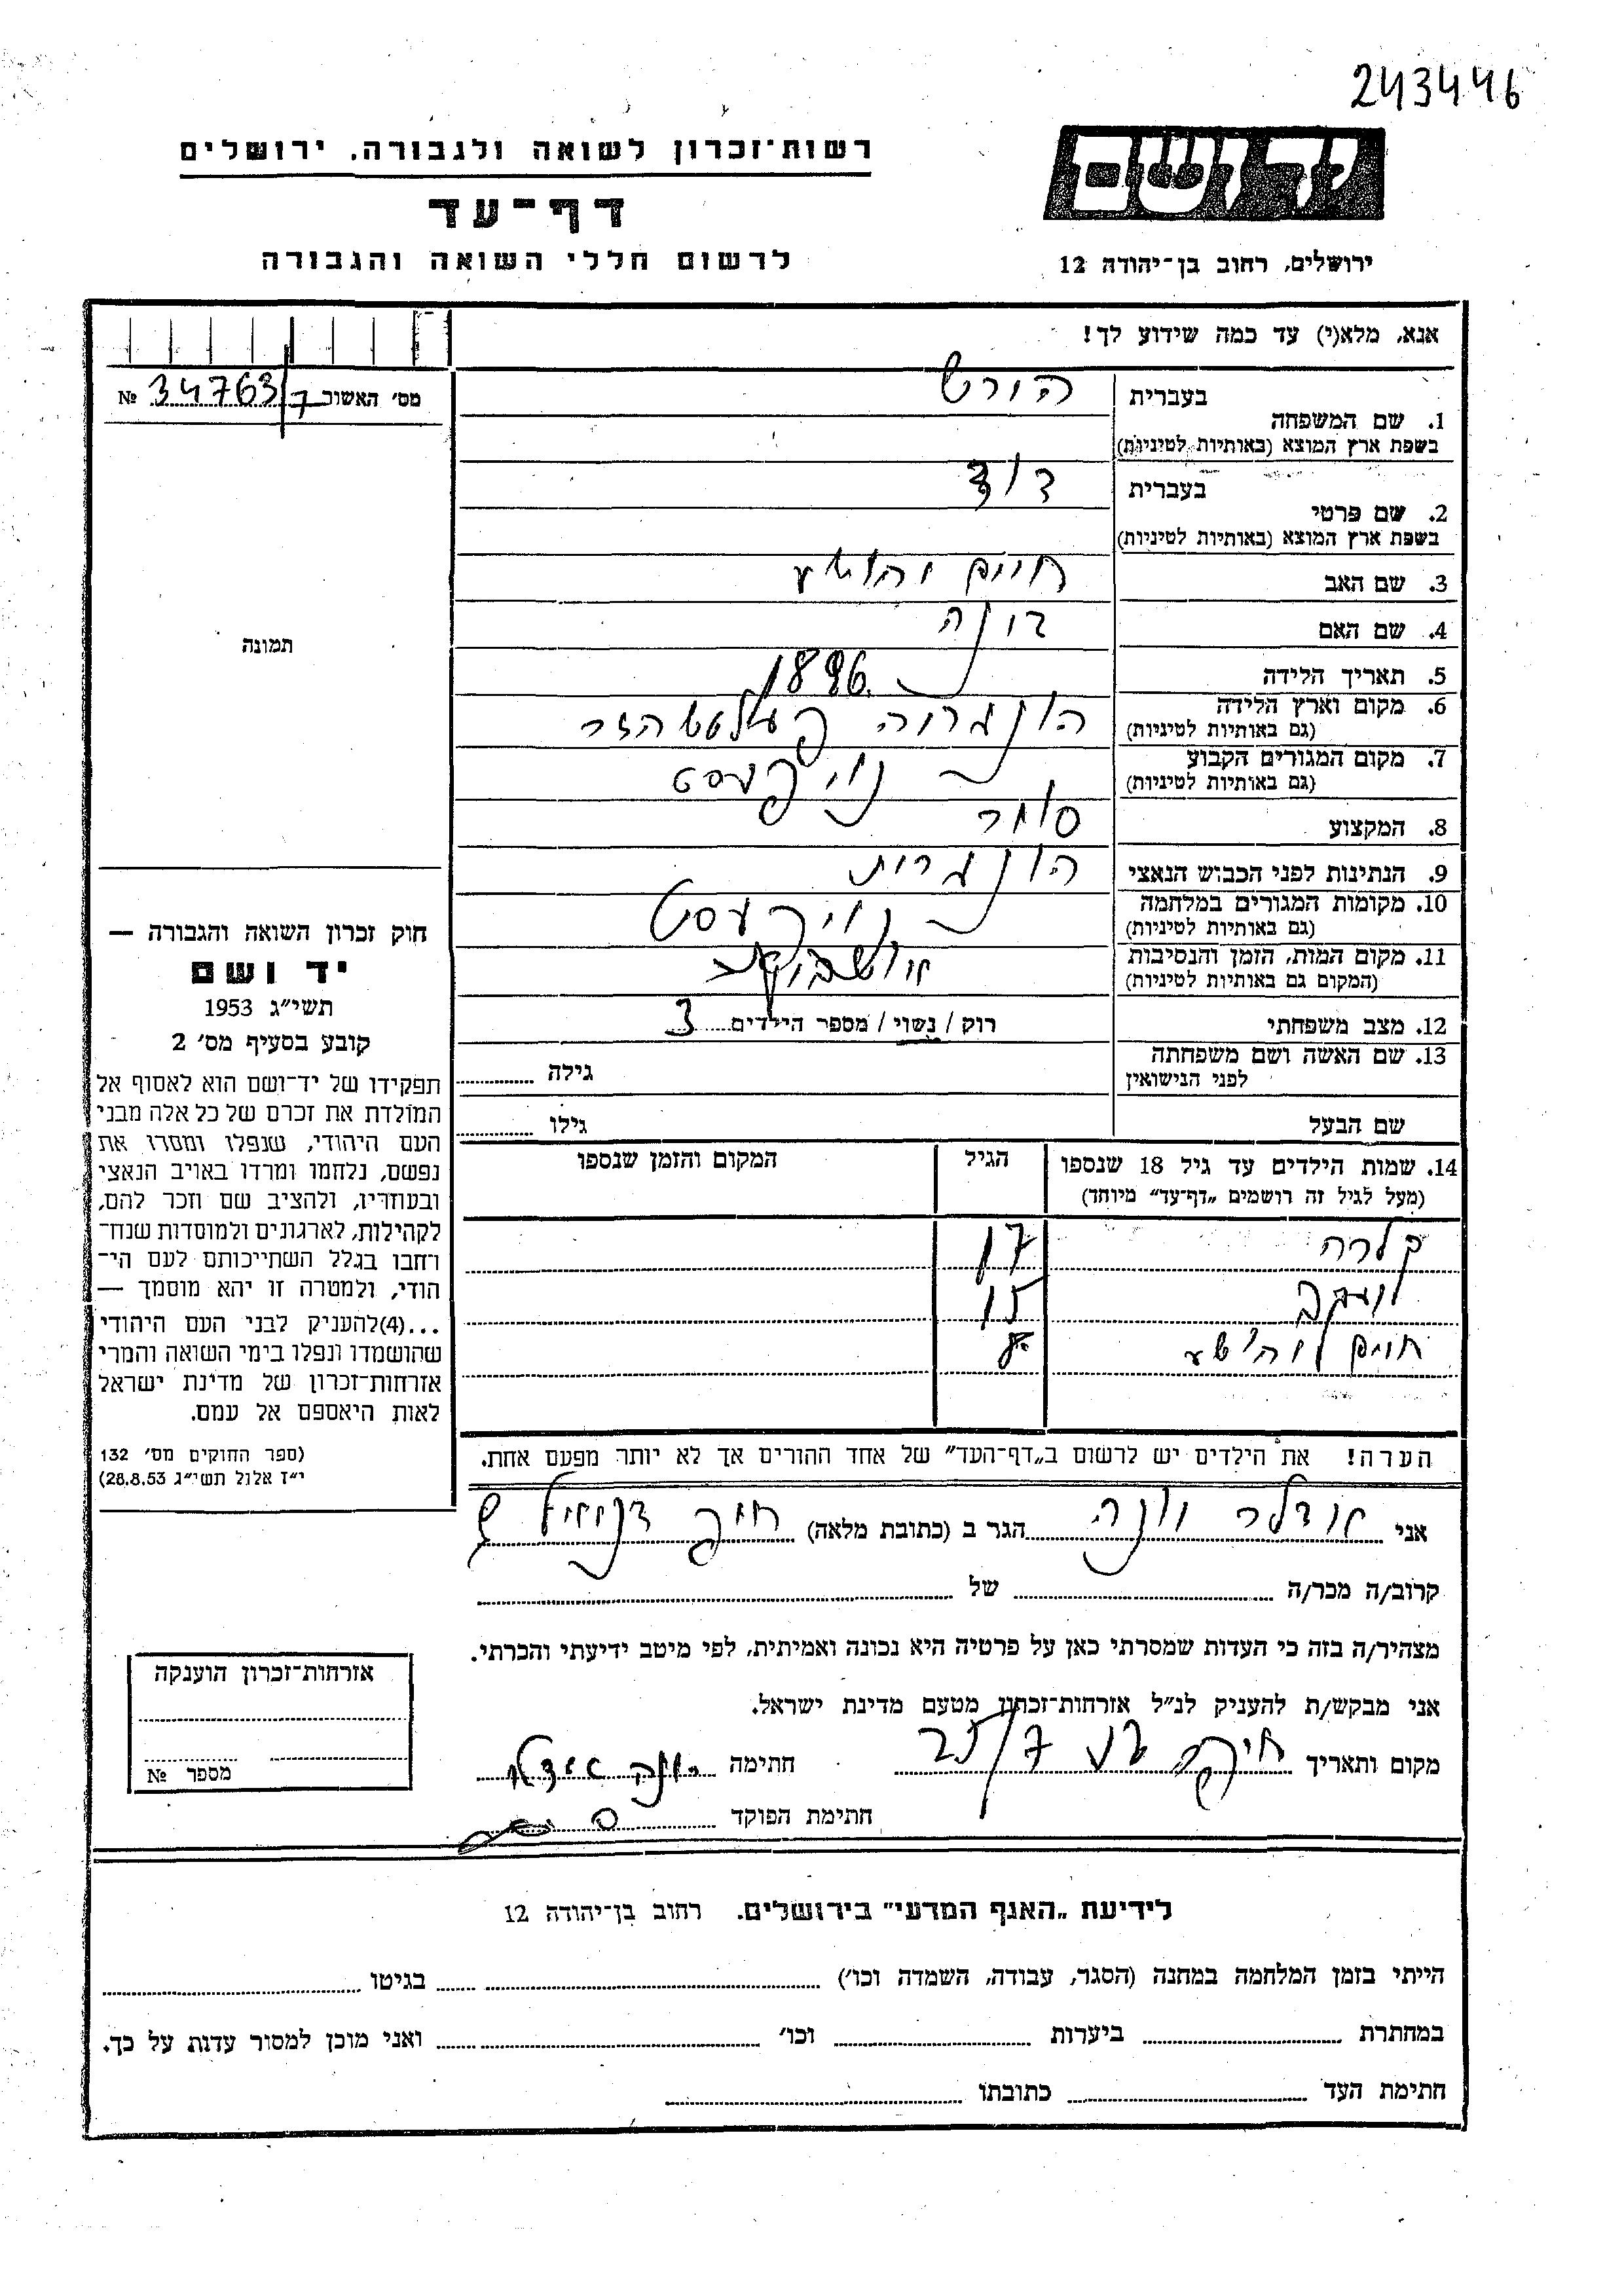 243446
ידושם
ירושלים, רחוב בן־יהודה 12
רשות־זכרון לשואה ולגבורה, ירושלים
דף־עד
לרשום חללי השואה והגבורה
אנא, מלא(י) עד כמה שידוע לך!
מס׳ האשור 34763/7 №
תמונה
בעברית
1. שם המשפחה הורש
בשפת ארץ המוצא (באותיות לטיניות)
בעברית
2. שם פרטי דוד
בשפת ארץ המוצא (באותיות לטיניות)
3. שם האב חיים יהושע
4. שם האם
5. תאריך הלידה 1896
6. מקום וארץ הלידה הונגריה
(גם באותיות לטיניות)
7. מקום המגורים הקבוע
(גם באותיות לטיניות)
8. המקצוע סוחר
9. הנתינות לפני הכבוש הנאצי הונגרית
10. מקומות המגורים במלחמה
(גם באותיות לטיניות)
11. מקום המות, הזמן והנסיבות
(המקום גם באותיות לטיניות)
12. מצב משפחתי רוק / נשוי / מספר הילדים 3
13. שם האשה ושם משפחתה
לפני הנישואין גילה
שם הבעל גילו
14. שמות הילדים עד גיל 18 שנספו הגיל המקום והזמן שנספו
(מעל לגיל זה רושמים „דף־עד״ מיוחד)
קלרה 17
יעקב 15
חיים יהושע 8
הערה! את הילדים יש לרשום ב„דף־העד״ של אחד ההורים אך לא יותר מפעם אחת.
חוק זכרון השואה והגבורה —
יד ושם
תשי״ג 1953
קובע בסעיף מס׳ 2
תפקידו של יד־ושם הוא לאסוף אל
המולדת את זכרם של כל אלה מבני
העם היהודי, שנפלו ומסרו את
נפשם, נלחמו ומרדו באויב הנאצי
ובעוזריו, ולהציב שם וזכר להם,
לקהילות, לארגונים ולמוסדות שנח־
רחבו בגלל השתייכותם לעם הי־
הודי, ולמטרה זו יהא מוסמך —
...(4)להעניק לבני העם היהודי
שהושמדו ונפלו בימי השואה והמרי
אזרחות־זכרון של מדינת ישראל
לאות היאספם אל עמם.
(ספר החוקים מס׳ 132
י״ז אלול תשי״ג 28.8.53)
אני אדלר יונה הגר ב (כתובת מלאה)
קרוב/ה מכר/ה של
מצהיר/ה בזה כי העדות שמסרתי כאן על פרטיה היא נכונה ואמיתית, לפי מיטב ידיעתי והכרתי.
אני מבקש/ת להעניק לנ״ל אזרחות־זכרון מטעם מדינת ישראל.
מקום ותאריך חיפה חתימה יונה אדלר
חתימת הפוקד
אזרחות־זכרון הוענקה
מספר №
לידיעת „האגף המדעי״ בירושלים. רחוב בן־יהודה 12
הייתי בזמן המלחמה במחנה (הסגר, עבודה, השמדה וכו׳) בגיטו
במחתרת ביערות וכו׳ ואני מוכן למסור עדות על כך.
חתימת העד כתובתו